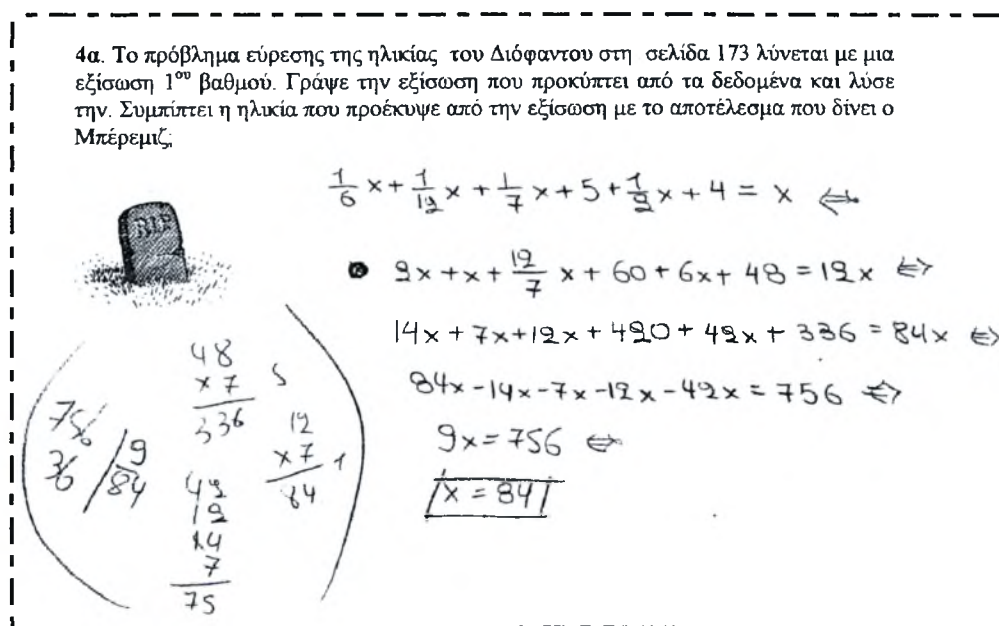 4α. Το πρόβλημα εύρεσης της ηλικίας του Διόφαντου στη σελίδα 173 λύνεται με μια
εξίσωση 1ου βαθμού. Γράψε την εξίσωση που προκύπτει από τα δεδομένα και λύσε
την. Συμπίπτει η ηλικία που προέκυψε από την εξίσωση με το αποτέλεσμα που δίνει ο
Μπέρεμιζ;
1/6 x + 1/12 x + 1/7 x + 5 + 1/2 x + 4 = x ⇔
RIP
2x + x + 12/7 x + 60 + 6x + 48 = 12x ⇔
14x + 7x + 12x + 420 + 42x + 336 = 84x ⇔
84x - 14x - 7x - 12x - 42x = 756 ⇔
9x = 756 ⇔
x = 84
48
x 7 5
336
12
x 7 1
84
756 / 9
36 / 84
42
12
14
7
75